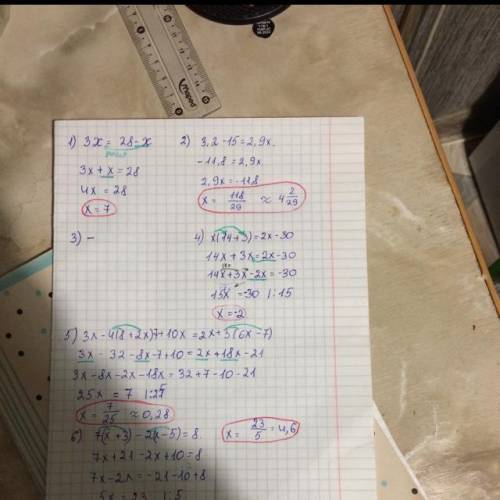 1) 3x = 28 - x
3x + x = 28
4x = 28
x = 7
2) 3,2 - 15 = 2,9x.
-11,8 = 2,9x.
2,9x = -11,8
x = 118/29 ≈ 4 2/29
3) —
4) x(14+3) = 2x - 30
14x + 3x = 2x - 30
14x + 3x - 2x = -30
15x = -30 | : 15
x = -2
5) 3x - 4(8 + 2x)7 + 10x = 2x + 3(6x - 7)
3x - 32 - 8x - 7 + 10 = 2x + 18x - 21
3x - 8x - 2x - 18x = 32 + 7 - 10 - 21
25x = 7 | : 25
x = 7/25 ≈ 0,28
6) 7(x + 3) - 2(x - 5) = 8
7x + 21 - 2x + 10 = 8
7x - 2x = -21 - 10 + 8
5x = 23 | : 5
x = 23/5 = 4,6
Maped